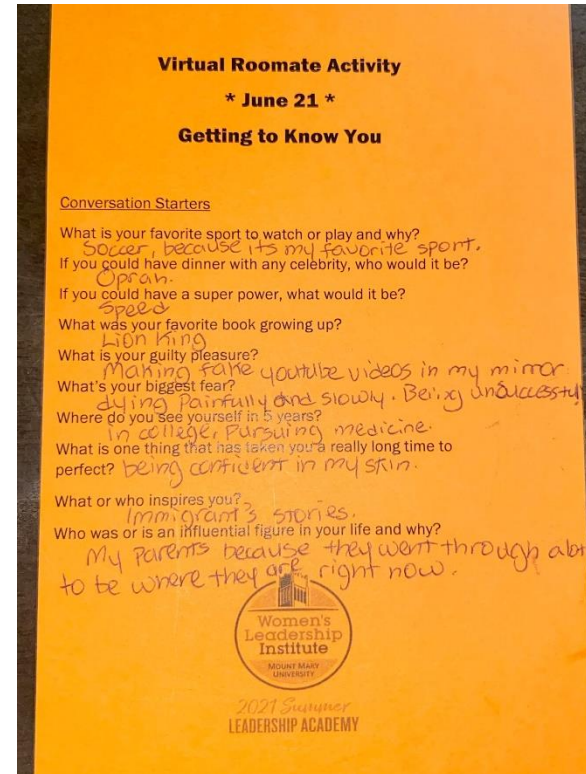 Virtual Roomate Activity
* June 21 *
Getting to Know You
Conversation Starters
What is your favorite sport to watch or play and why?
Soccer, because its my favorite sport.
If you could have dinner with any celebrity, who would it be?
Oprah.
If you could have a super power, what would it be?
Speed
What was your favorite book growing up?
Lion King
What is your guilty pleasure?
Making fake youtube videos in my mirror
What's your biggest fear?
dying Painfully and slowly. Being unsuccessful
Where do you see yourself in 5 years?
in college, Pursuing medicine.
What is one thing that has taken you a really long time to
perfect? being confident in my skin.
What or who inspires you?
Immigrant's stories.
Who was or is an influential figure in your life and why?
My Parents because they went through alot
to be where they are right now.
Women's
Leadership
Institute
MOUNT MARY
UNIVERSITY
2021 Summer
LEADERSHIP ACADEMY